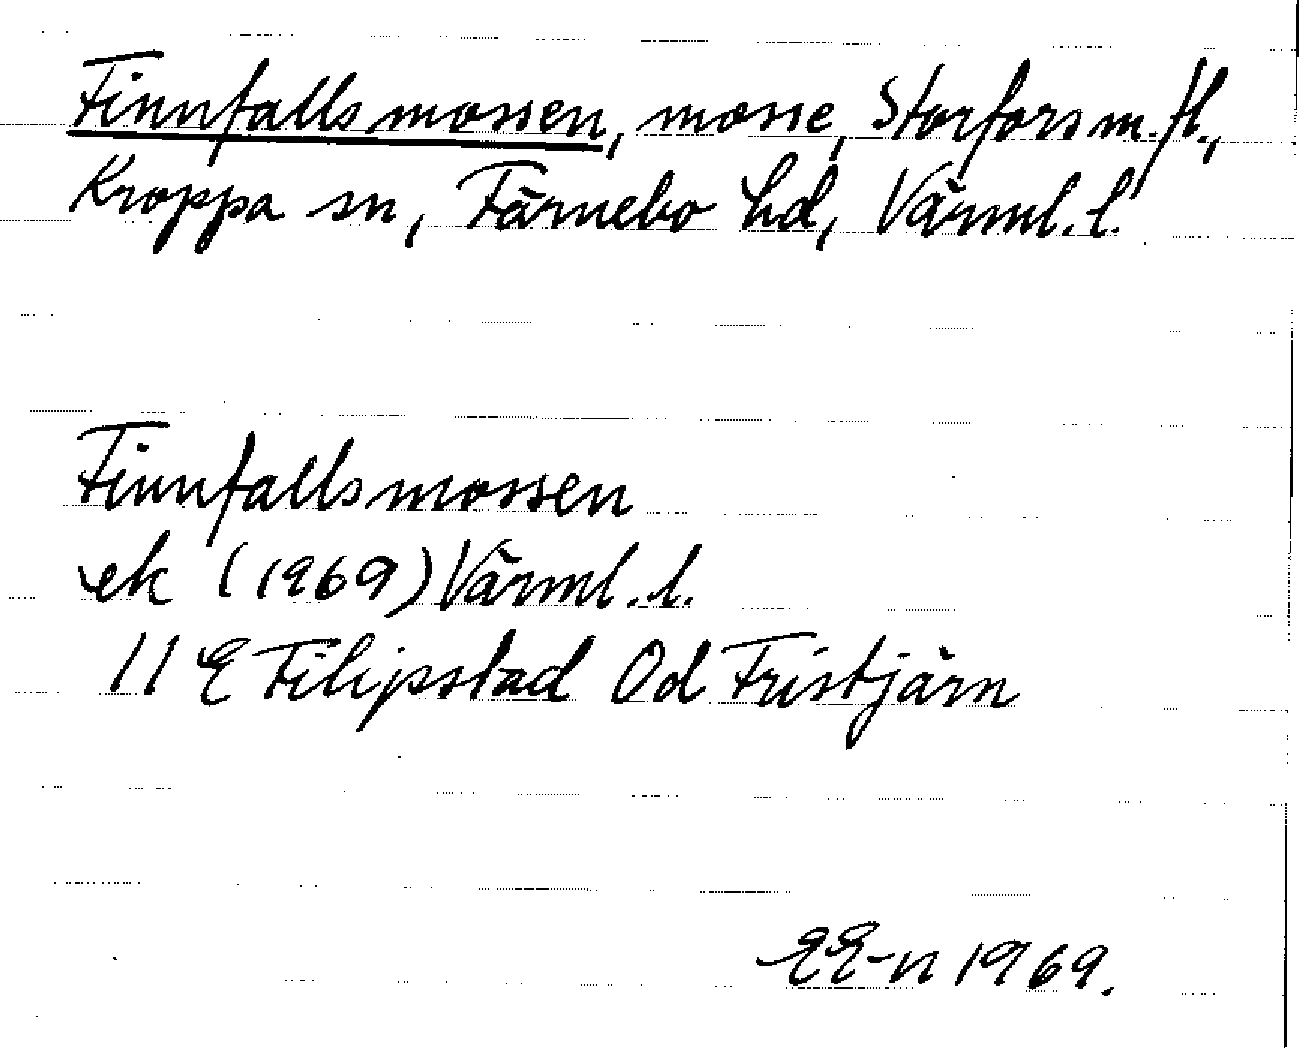 Finnfallsmossen, mosse, Storfors m. fl.,
Kroppa sn, Färnebo hd, Värml. l.
Finnfallsmossen
ek (1969) Värml. l.
11 E Filipstad Od Fristjärn
EE-n 1969.